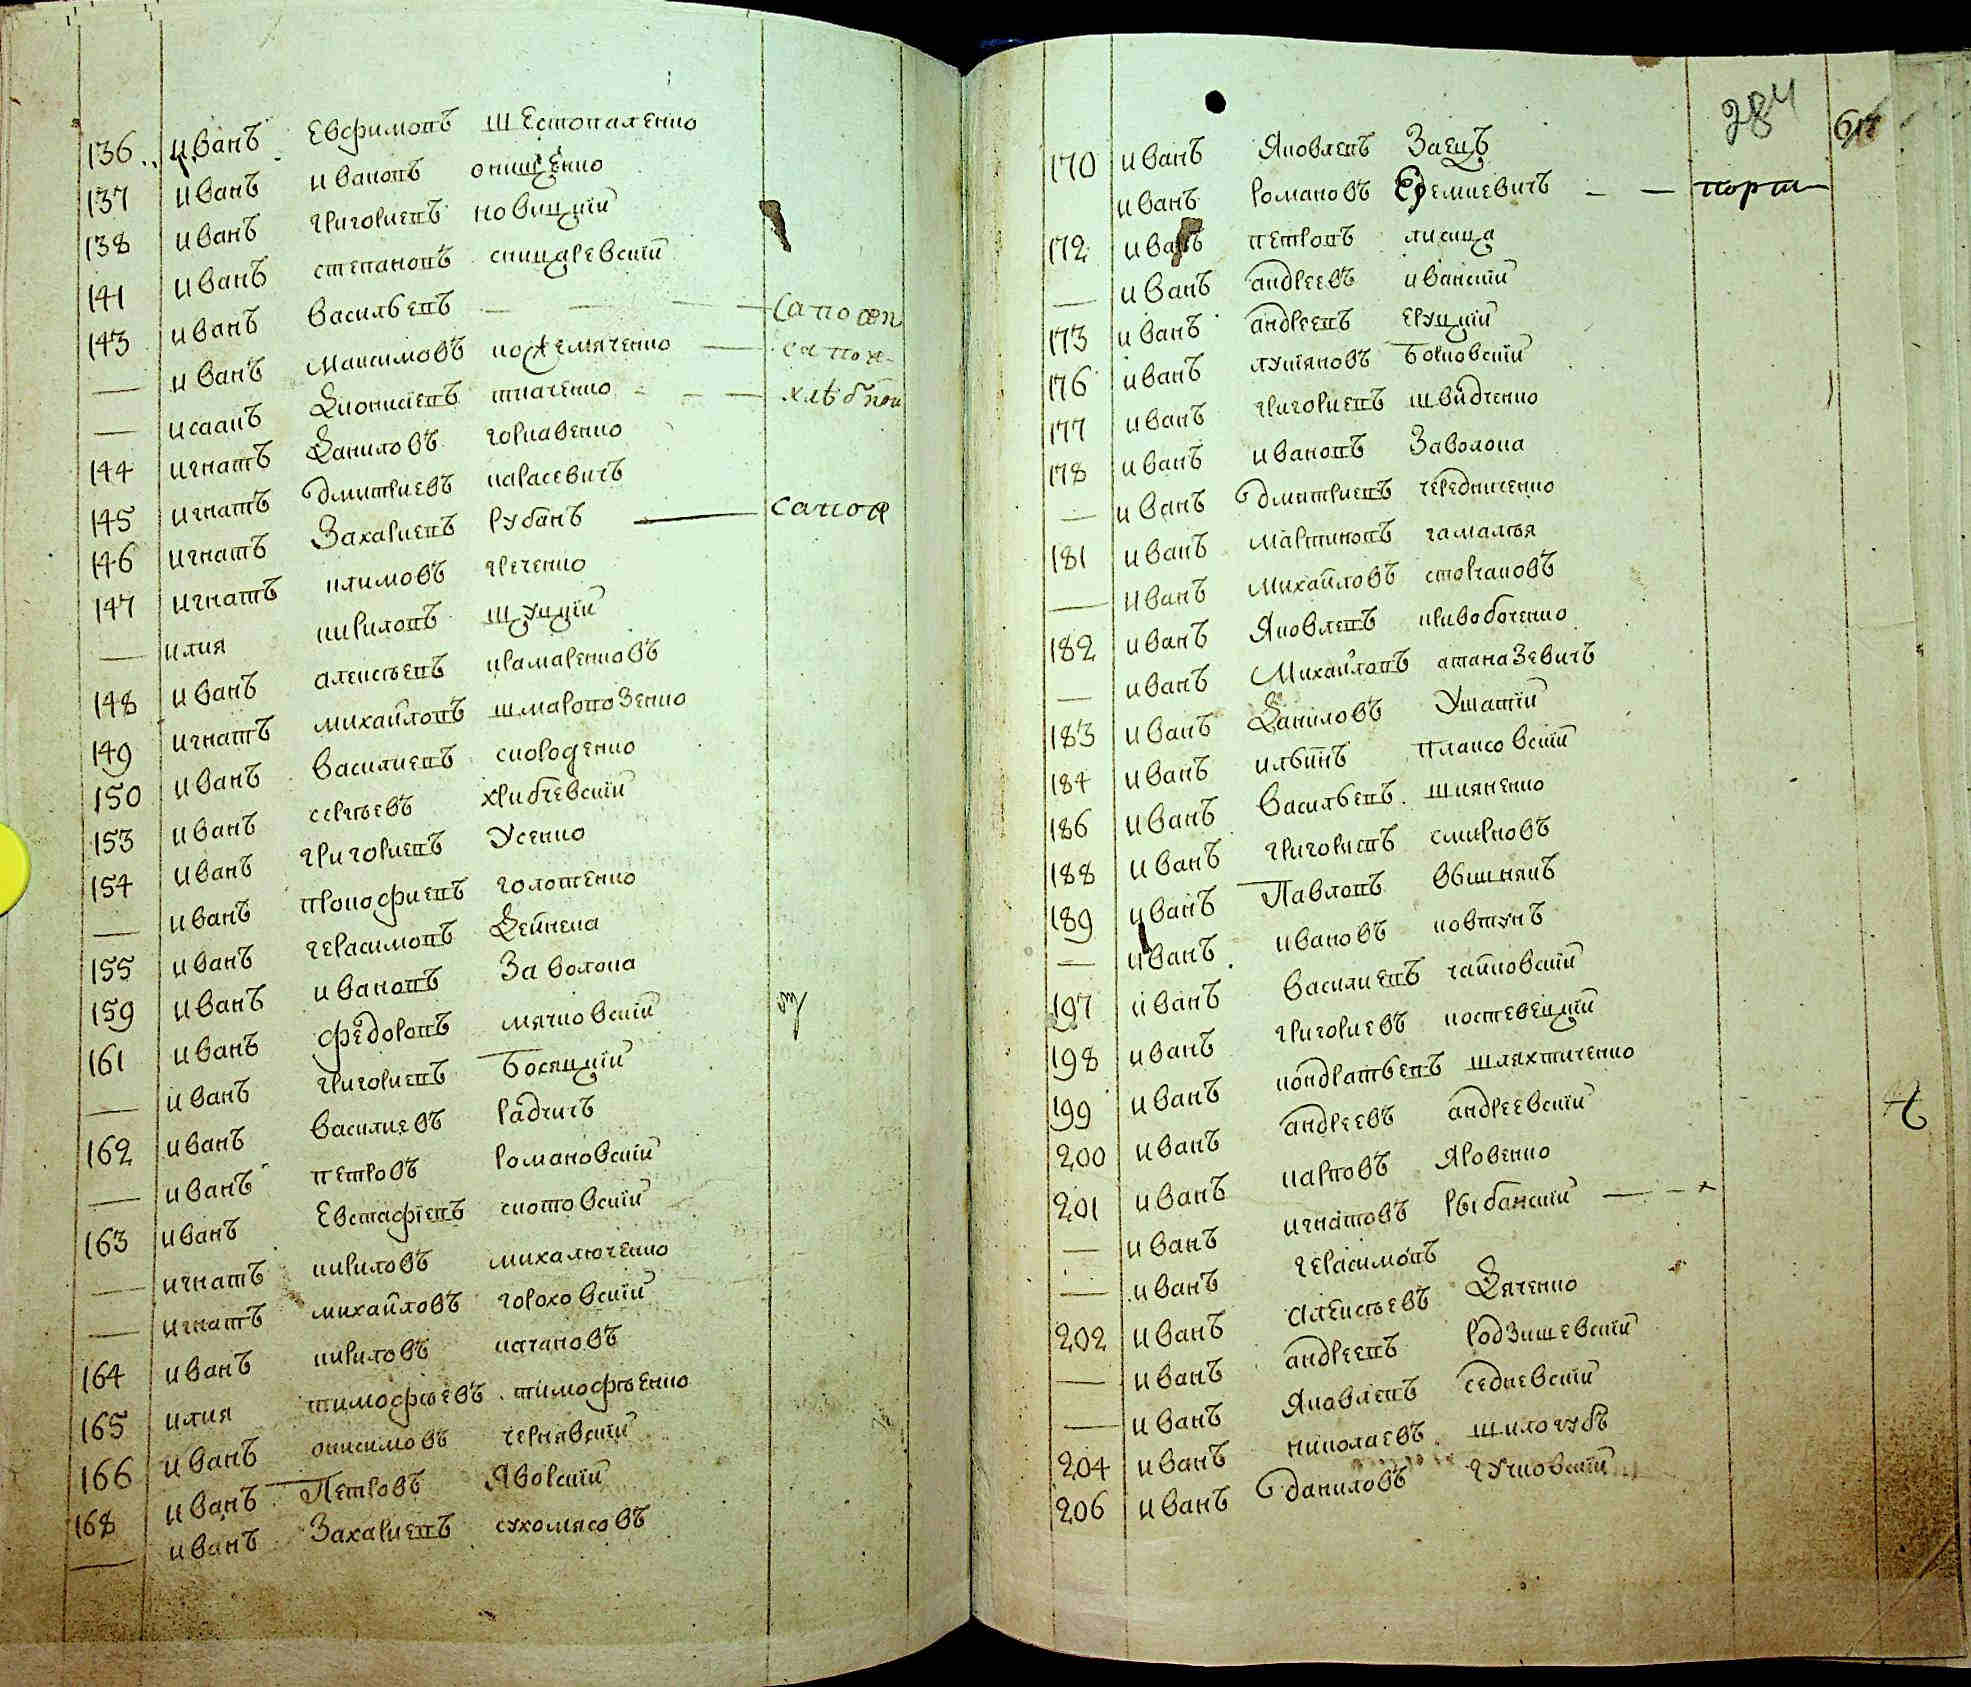 136 иванъ Евфимовъ шЕстопаленко
137 иванъ ивановъ онищенко
138 иванъ григориевъ новицкїй
141 иванъ степановъ сницаревскїй
143 иванъ васильевъ — — — — сапожн
— иванъ максимовъ кожемяченко — сапож
— исаакъ Дионисиевъ ткаченко - — — хлѣбной
144 игнатъ Даниловъ горкавенко
145 игнатъ дмитриевъ карасевичъ
146 игнатъ Захариевъ рубанъ — сапож
147 игнатъ климовъ греченко
— илия кириловъ шуцкїй
148 иванъ алексѣевъ крамаренковъ
149 игнатъ михайловъ шмаропозенко
150 иванъ василиевъ сиороденко
153 иванъ сергѣевъ хрибчевскїй
154 иванъ григориевъ Усенко
— иванъ прокофиевъ голотенко
155 иванъ герасимовъ Дейнека
159 иванъ ивановъ Заволока
161 иванъ федоровъ мячковскїй
— иванъ григориевъ Босяцкїй
162 иванъ василиевъ радчичъ
— иванъ петровъ романовскїй
163 иванъ Евстафїевъ скотовскїй
— игнатъ кириловъ михалюченко
— игнатъ михайловъ гороховскїй
164 иванъ кириловъ качановъ
165 илия тимофѣевъ тимофѣенко
166 иванъ онисимовъ чернявскїй
168 иванъ Петровъ Яворскїй
— иванъ Захариевъ сухомясовъ
284
170 иванъ Яковлевъ Заецъ
иванъ романовъ Еремиевичъ — — порт
172 иванъ петровъ лисица
— иванъ андреевъ иванскїй
173 иванъ андреевъ Еруцкїй
176 иванъ лукїяновъ Борковскїй
177 иванъ григориевъ швидченко
178 иванъ ивановъ Заволока
— иванъ дмитриевъ чередниченко
181 иванъ мартиновъ гамалѣя
— иванъ михайловъ сторчаковъ
182 иванъ Яковлевъ кривобоченко
— иванъ Михайловъ атаназевичъ
183 иванъ Даниловъ Ушатїй
184 иванъ ильинъ плаксовскїй
186 иванъ васильевъ шияненко
188 иванъ григориевъ смирновъ
189 иванъ Павловъ вѣшнякъ
— иванъ ивановъ ковтунъ
197 иванъ василиевъ чайковскїй
198 иванъ григориевъ костевецкїй
199 иванъ кондратьевъ шляхтиченко
200 иванъ андреевъ андреевскїй
201 иванъ карповъ Яровенко
— иванъ игнатовъ рыбанскїй — - -
— иванъ герасимовъ
202 иванъ Алексѣевъ Дяченко
— иванъ андреевъ родзишевскїй
— иванъ Яковлевъ седневскїй
204 иванъ николаевъ шилогубъ
206 иванъ даниловъ гучковскїй